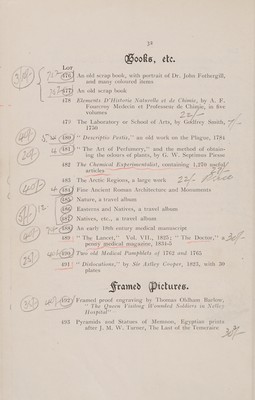 32
Books, etc.
LOT
476 An old scrap book, with portrait of Dr. John Fothergill,
and many coloured items
477 An old scrap book
478 Elements D'Histoire Naturelle et de Chimie, by A. F.
Fourcroy Medecin et Professeur de Chimie, in five
volumes
22/-
479 The Laboratory or School of Arts, by Godfrey Smith,
1750
7/-
480 "Descriptio Pestis," an old work on the Plague, 1784
481 "The Art of Perfumery," and the method of obtain-
ing the odours of plants, by G. W. Septimus Piesse
482 The Chemical Experimentalist, containing 1,278 useful
articles
483 The Arctic Regions, a large work
22/-
484 Fine Ancient Roman Architecture and Monuments
485 Nature, a travel album
486 Easterns and Natives, a travel album
487 Natives, etc., a travel album
488 An early 18th century medical manuscript
489 "The Lancet," Vol. VII., 1825; "The Doctor," a
penny medical magazine, 1834-5
490 Two old Medical Pamphlets of 1762 and 1765
491 "Dislocations," by Sir Astley Cooper, 1823, with 30
plates
Framed Pictures.
492 Framed proof engraving by Thomas Oldham Barlow,
"The Queen Visiting Wounded Soldiers in Netley
Hospital"
493 Pyramids and Statues of Memnon, Egyptian prints
after J. M. W. Turner, The Last of the Temeraire